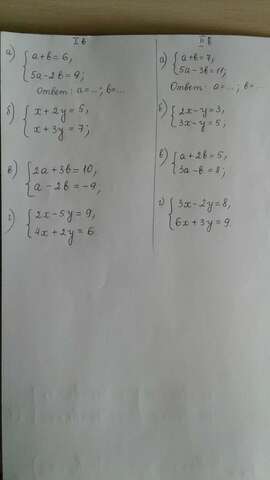 I в
а) { a+b=6,
5a-2b=9;
Ответ: a=...; b=...
б) { x+2y=5,
x+3y=7;
в) { 2a+3b=10,
a-2b=-9;
г) { 2x-5y=9,
4x+2y=6
II в
а) { a+b=7,
5a-3b=11;
Ответ: a=...; b=...
б) { 2x-y=3,
3x-y=5;
в) { a+2b=5,
3a-b=8;
г) { 3x-2y=8,
6x+3y=9